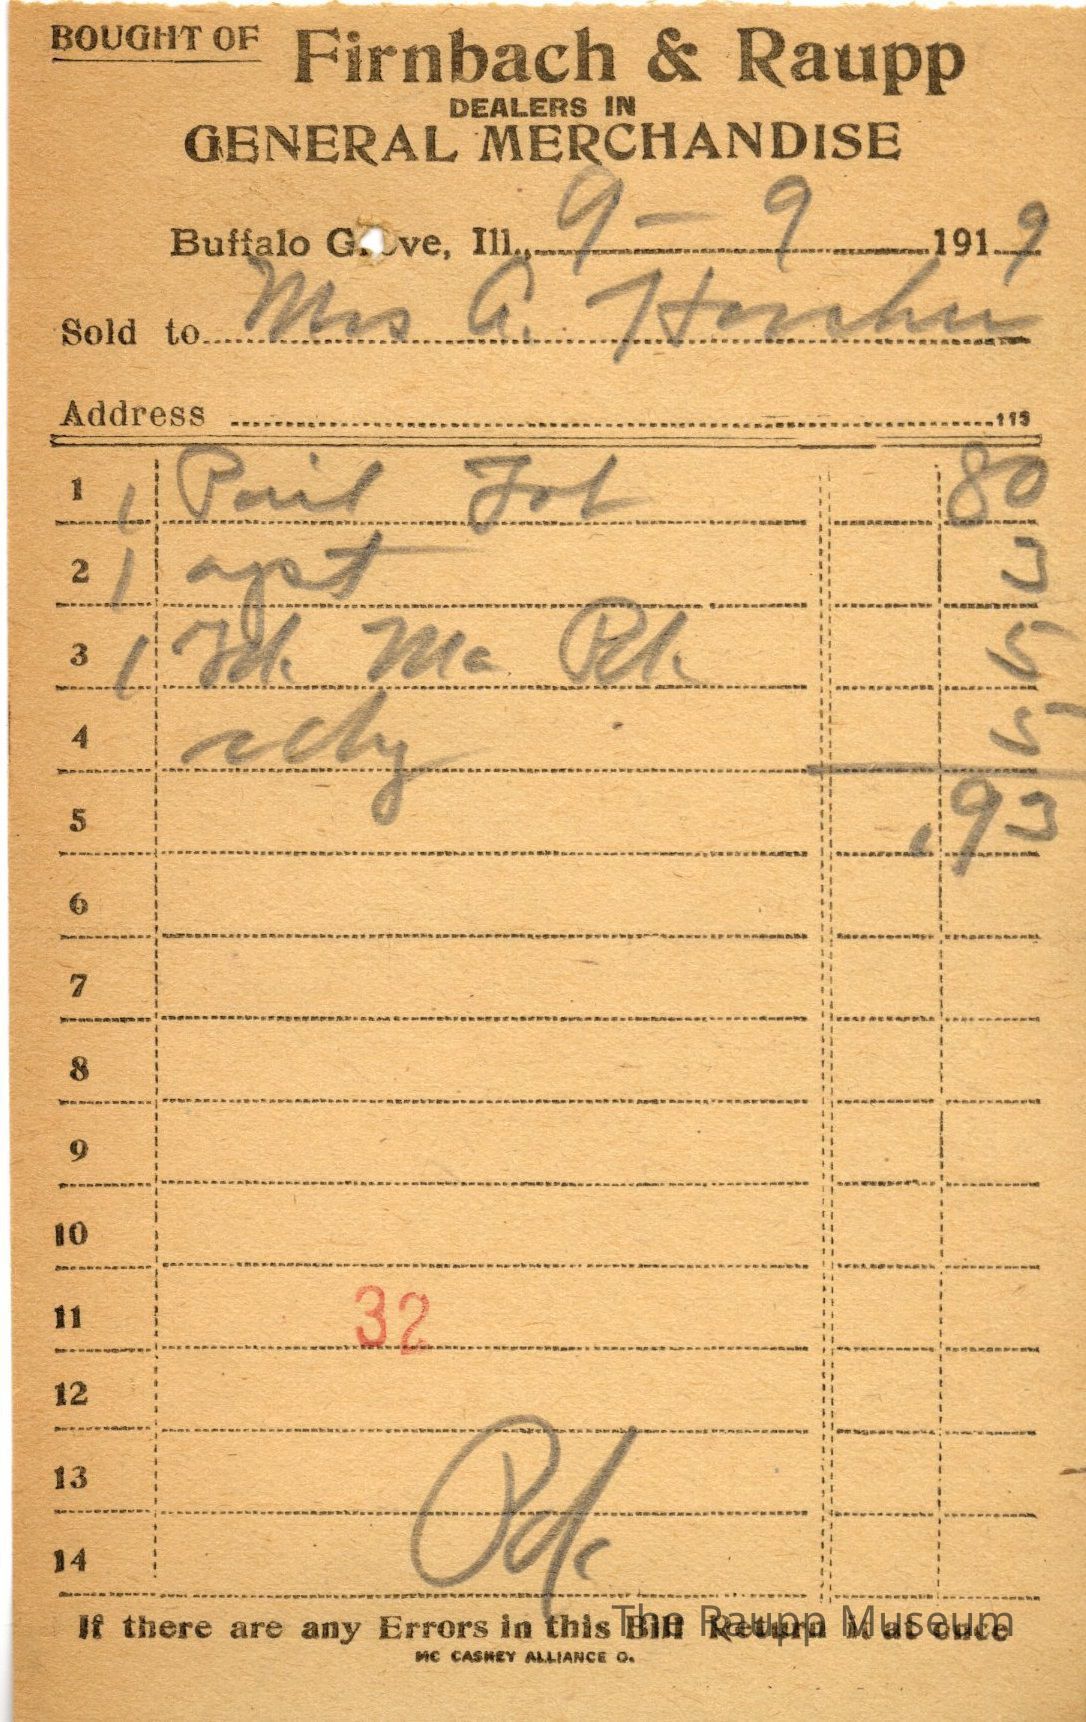 BOUGHT OF Firnbach & Raupp
DEALERS IN
GENERAL MERCHANDISE
Buffalo Grove, Ill., 9-9 1919
Sold to Mrs A.
Address 115
1 1 Pail 80
2 1 3
3 1 5
4 5
5 .93
6
7
8
9
10
11 32
12
13
14
Pd
If there are any Errors in this Bill Return it at once
The Raupp Museum
MC CASKEY ALLIANCE O.